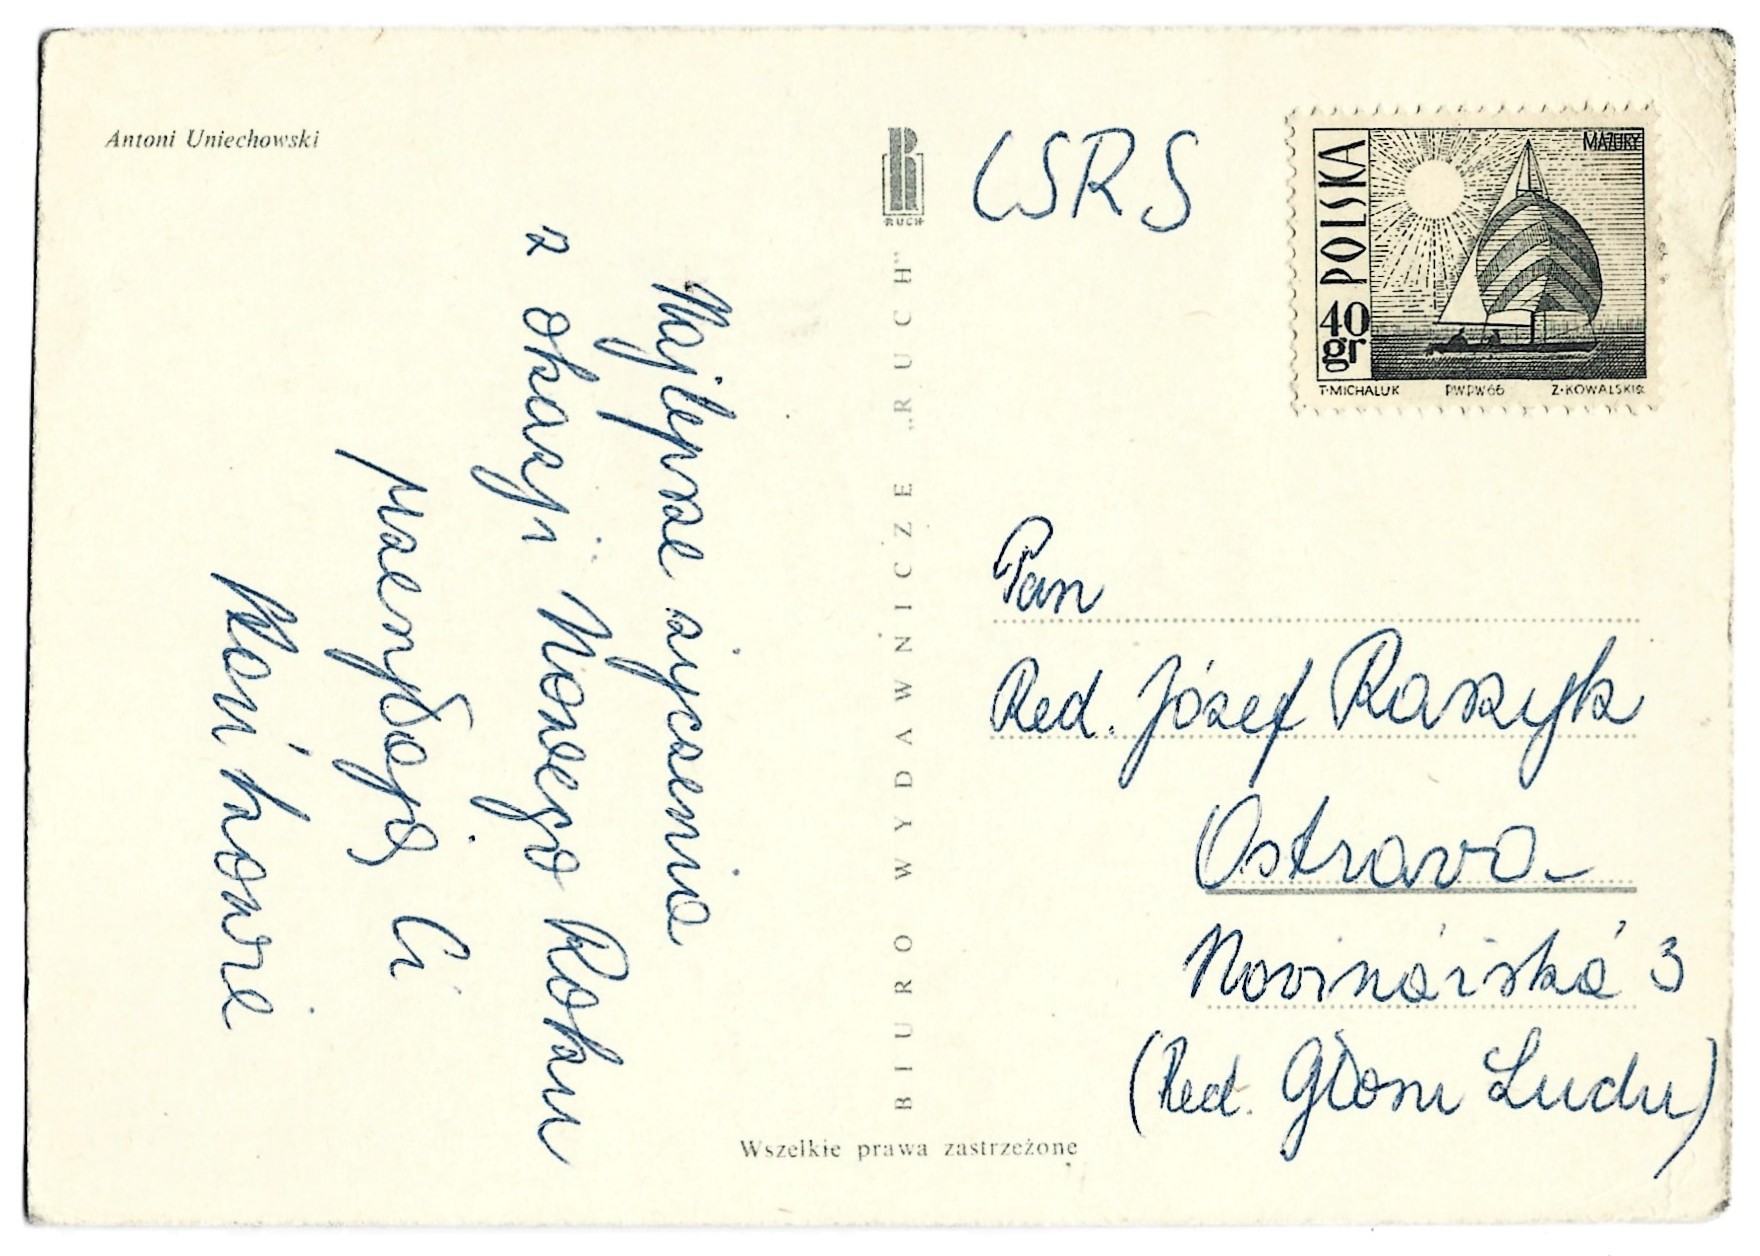 Antoni Uniechowski
RUCH
CSRS
POLSKA
MAZURY
40
gr
T. MICHALUK PWPW66 Z. KOWALSKI
Najlepsze życzenia
z okazji Nowego Roku
przesyłają Ci
BIURO WYDAWNICZE „RUCH”
Pan
Red. Józef Raszyk
Ostrava
Novinářská 3
(Red. Głosu Ludu)
Wszelkie prawa zastrzeżone